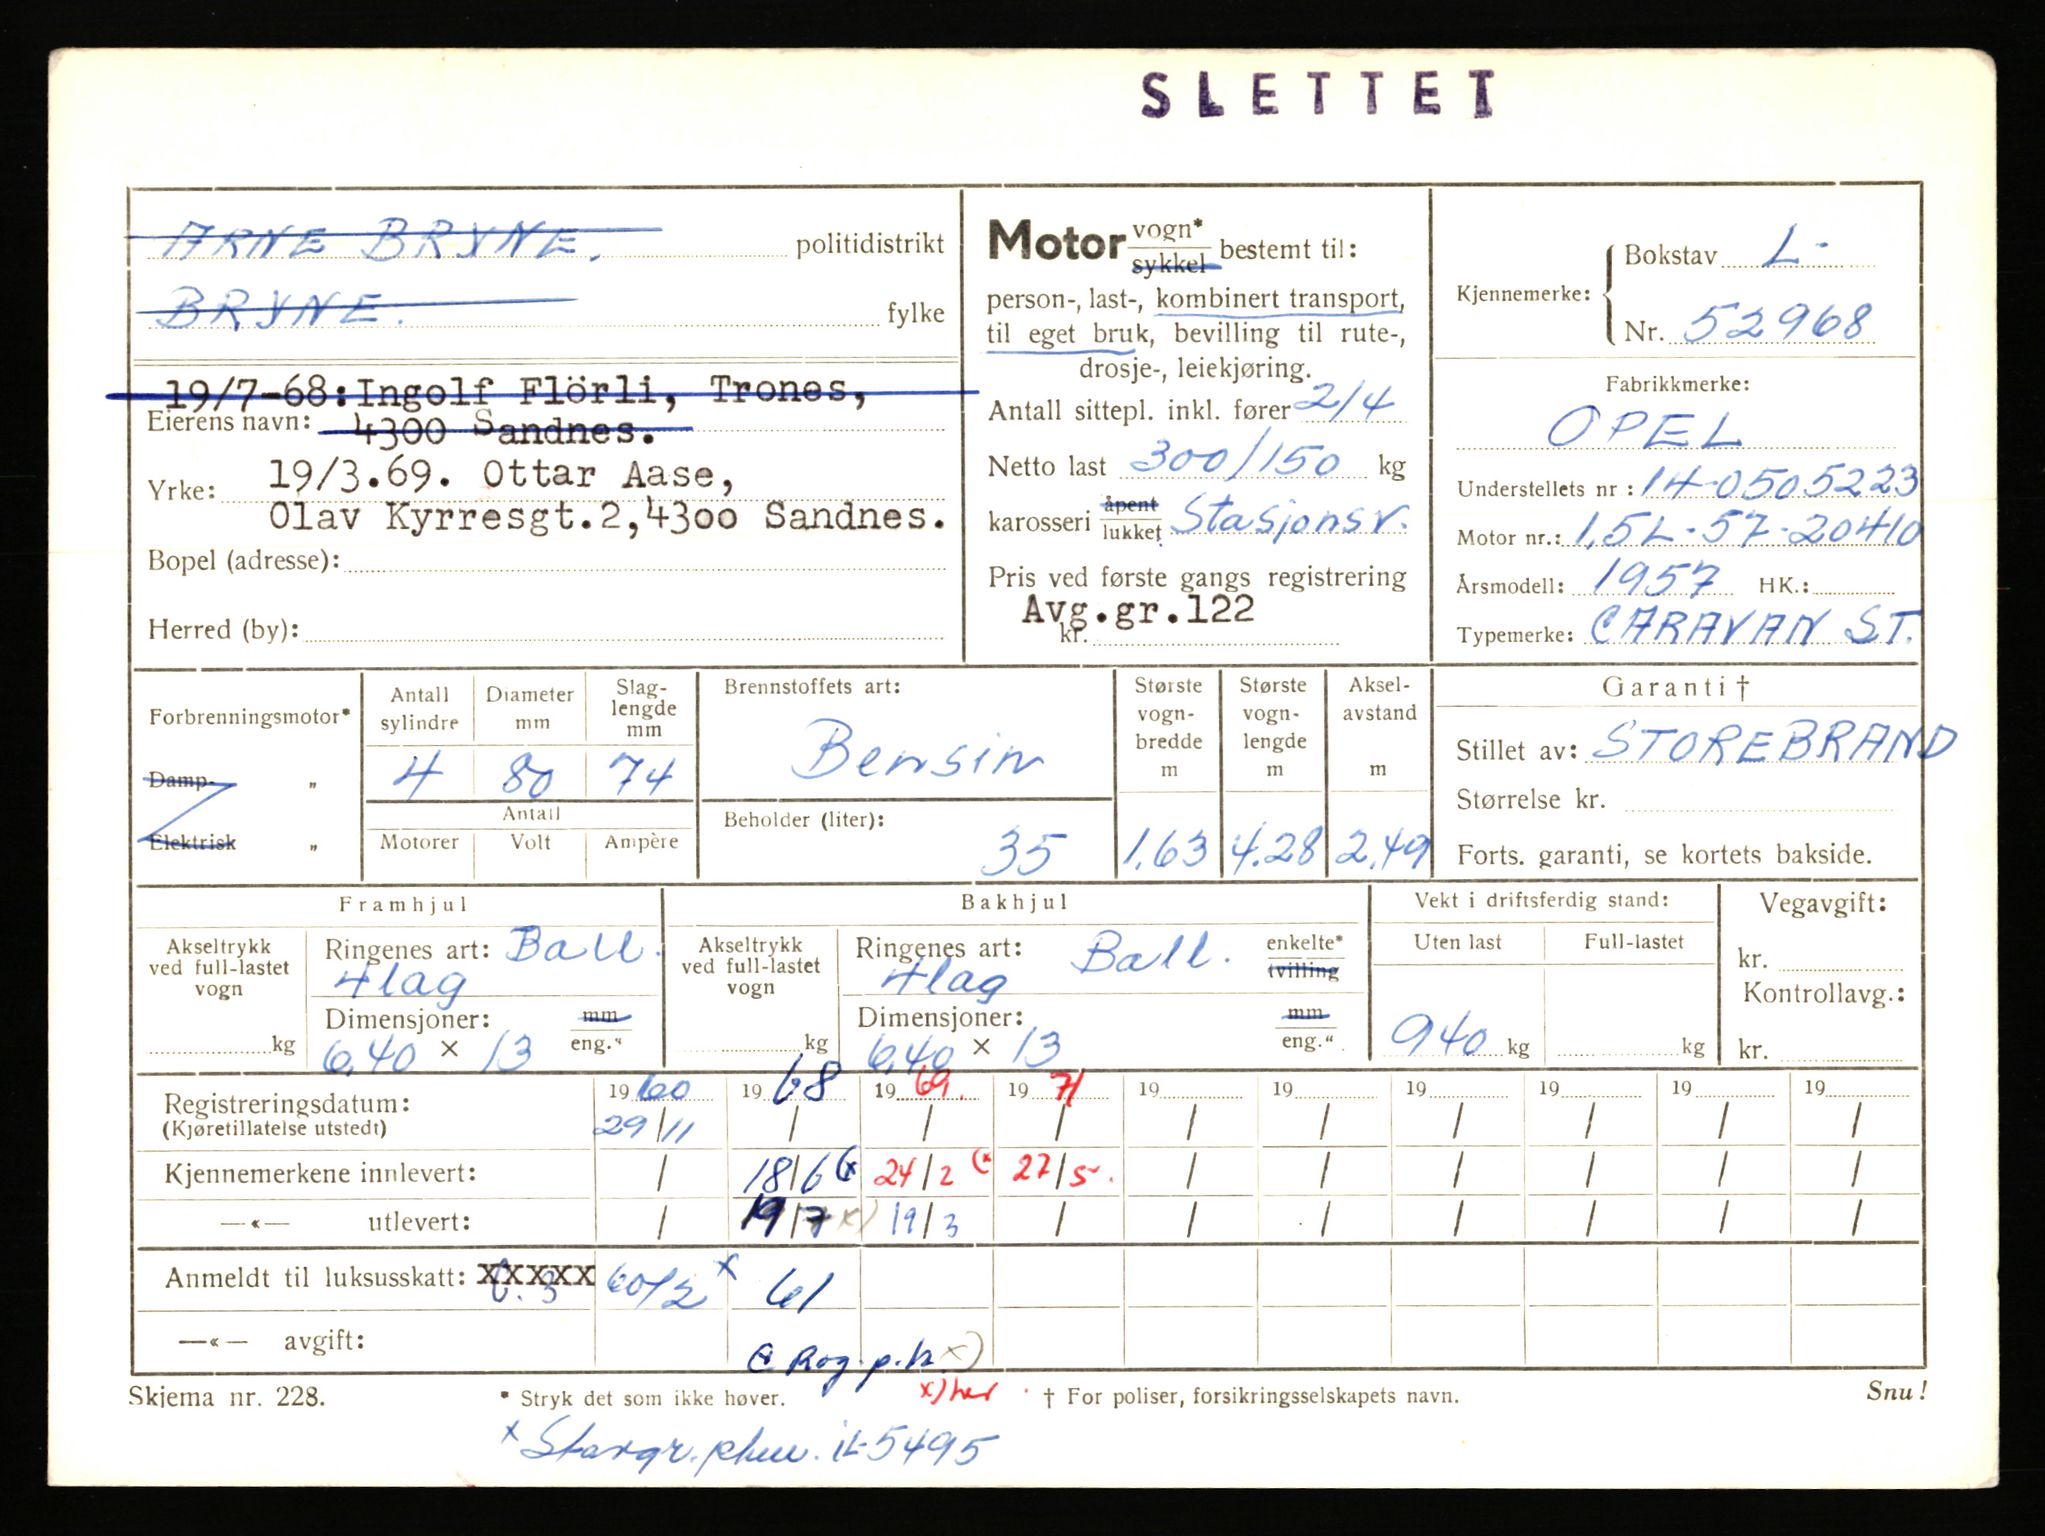 SLETTET
ARNE BRYNE. politidistrikt
BRYNE. fylke
19/7-68: Ingolf Flörli, Trones,
Eierens navn: 4300 Sandnes.
Yrke: 19/3.69. Ottar Aase,
Olav Kyrresgt.2,43oo Sandnes.
Bopel (adresse):
Herred (by):
Motor vogn* sykkel bestemt til:
person-, last-, kombinert transport,
til eget bruk, bevilling til rute-,
drosje-, leiekjøring.
Antall sittepl. inkl. fører 2/4
Netto last 300/150 kg
karosseri åpent lukket Stasjonsv.
Pris ved første gangs registrering
Avg.gr.122
kr.
Kjennemerke: Bokstav L-
Nr. 52968
Fabrikkmerke:
OPEL
Understellets nr.: 14-0505223
Motor nr.: 1,5L-57-20410
Årsmodell: 1957 HK.:
Typemerke: CARAVAN ST.
Forbrenningsmotor*
Damp- „
Elektrisk „
Antall sylindre Diameter mm Slag-lengde mm
4 80 74
Antall
Motorer Volt Ampère
Brennstoffets art:
Bensin
Beholder (liter):
35
Største vogn-bredde m
1.63
Største vogn-lengde m
4.28
Aksel-avstand m
2.49
Garanti †
Stillet av: STOREBRAND
Størrelse kr.
Forts. garanti, se kortets bakside.
Framhjul
Akseltrykk ved full-lastet vogn
kg
Ringenes art: Ball.
4 lag
Dimensjoner: mm
6,40 × 13 eng."
Bakhjul
Akseltrykk ved full-lastet vogn
kg
Ringenes art: Ball. enkelte* tvilling
4 lag
Dimensjoner: mm
6,40 × 13 eng."
Vekt i driftsferdig stand:
Uten last Full-lastet
940 kg kg
Vegavgift:
kr.
Kontrollavg.:
kr.
Registreringsdatum: 1960 1968 1969. 1971 19 19 19 19 19 19
(Kjøretillatelse utstedt) 29/11 / / / / / / / / /
Kjennemerkene innlevert: / 18/6 (x 24/2 (x 27/5. / / / / / /
—«— utlevert: / 19/7 x) 19/3 / / / / / / /
Anmeldt til luksusskatt: XXXXX 60/2 x 61
—«— avgift:
Rog.p.k x)
x) her
Skjema nr. 228. * Stryk det som ikke høver. † For poliser, forsikringsselskapets navn. Snu!